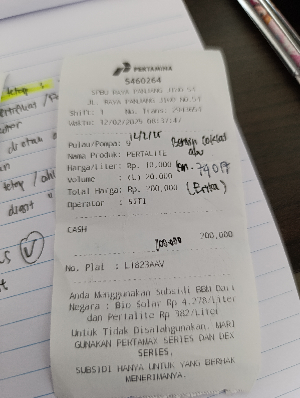 PERTAMINA
5460264
SPBU RAYA PANJANG JIWO 51
JL. RAYA PANJANG JIWO NO.51
Shift: 1 No. Trans:
Waktu: 12/02/2025
Pulau/Pompa: 9
Nama Produk: PERTALITE
Harga/Liter: Rp. 10,000
Volume : (L) 20,000
Total Harga: Rp. 200,000
(Erka)
Operator : SITI
CASH
200,000
200.000
No. Plat : L1823AAV
Anda Menggunakan Subsidi BBM Dari
Negara : Bio Solar Rp 4.270/Liter
dan Pertalite Rp 382/Liter
Untuk Tidak Disalahgunakan. MARI
GUNAKAN PERTAMAX SERIES DAN DEX
SERIES.
SUBSIDI HANYA UNTUK YANG BERHAK
MENERIMANYA.